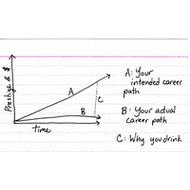 Prestige & $
A
B
C
time
A: Your
intended career
path
B: Your actual
career path
C: Why you drink